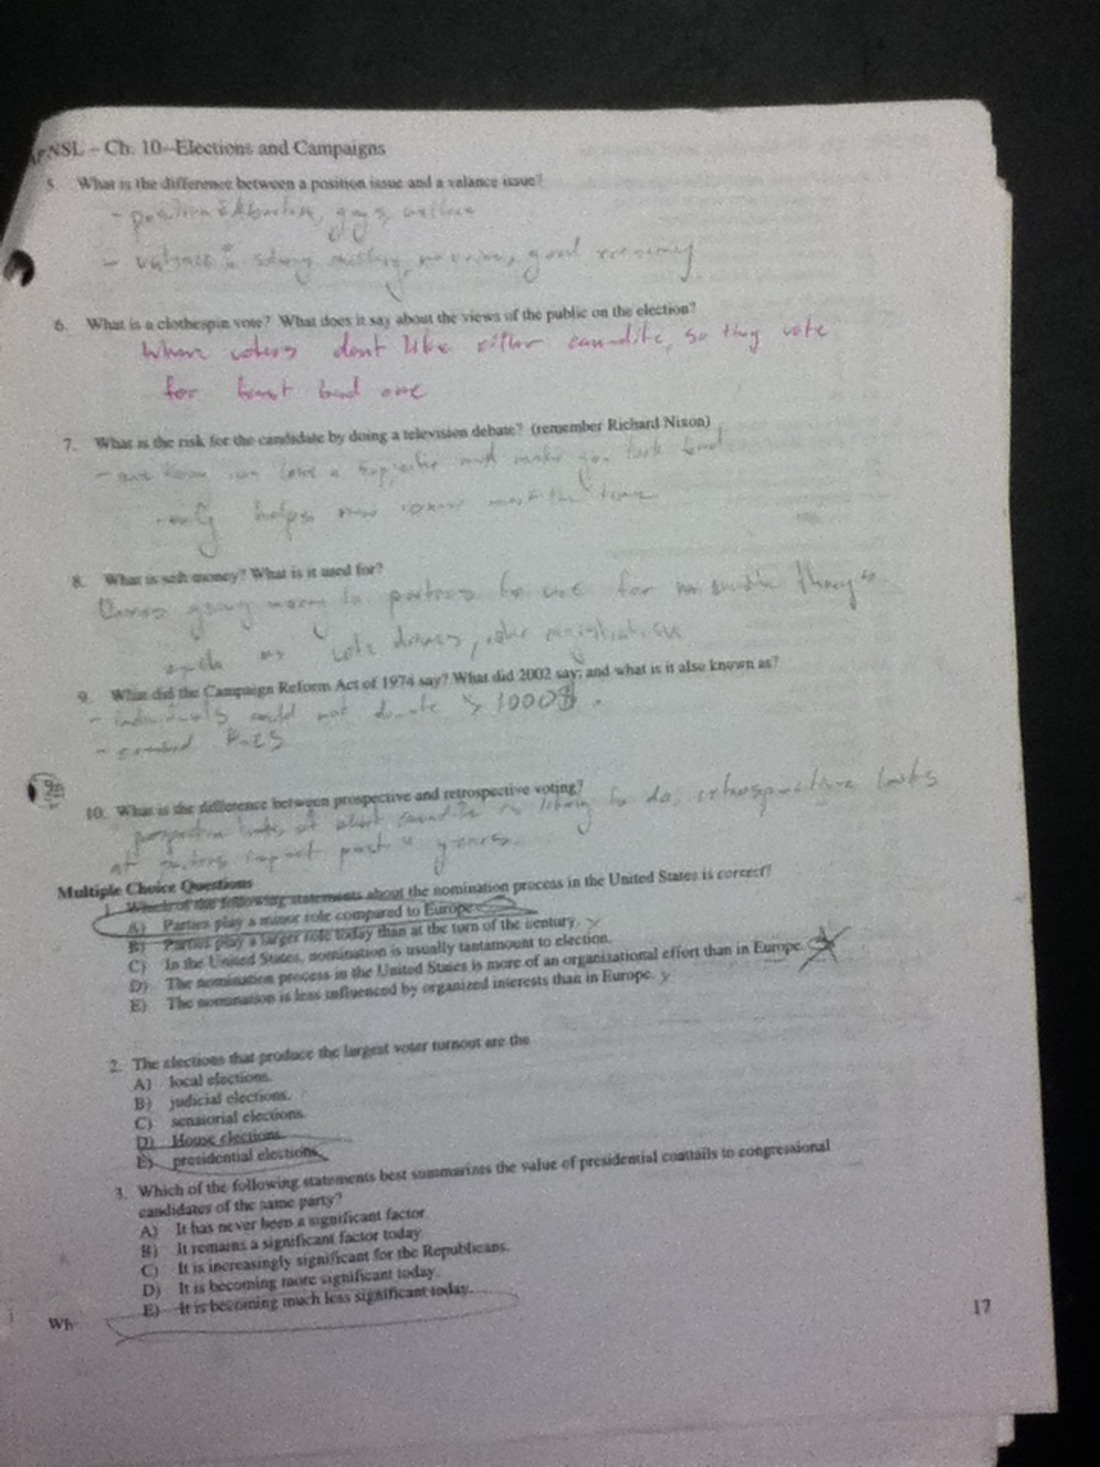 NSL - Ch. 10--Elections and Campaigns
5. What is the difference between a position issue and a valance issue?
- position:
- valance: strong military, good economy
6. What is a clothespin vote? What does it say about the views of the public on the election?
When voters dont like either canndite, so they vote
for least bad one
7. What is the risk for the candidate by doing a television debate? (remember Richard Nixon)
and make you look bad
- only helps most the time
8. What is soft money? What is it used for?
money to parties to use for things
such as vote drives, voter registration
9. What did the Campaign Reform Act of 1974 say? What did 2002 say; and what is it also known as?
- individuals could not donate > 1000$.
- created PACS
10. What is the difference between prospective and retrospective voting?
looks at what is to do, retrospective looks
at impact past years.
Multiple Choice Questions
1. Which of the following statements about the nomination process in the United States is correct?
A) Parties play a minor role compared to Europe
B) Parties play a larger role today than at the turn of the century.
C) In the United States, nomination is usually tantamount to election.
D) The nomination process in the United States is more of an organizational effort than in Europe.
E) The nomination is less influenced by organized interests than in Europe.
2. The elections that produce the largest voter turnout are the
A) local elections.
B) judicial elections.
C) senatorial elections.
D) House elections.
E) presidential elections.
3. Which of the following statements best summarizes the value of presidential coattails to congressional
candidates of the same party?
A) It has never been a significant factor.
B) It remains a significant factor today.
C) It is increasingly significant for the Republicans.
D) It is becoming more significant today.
E) It is becoming much less significant today.
Wh
17